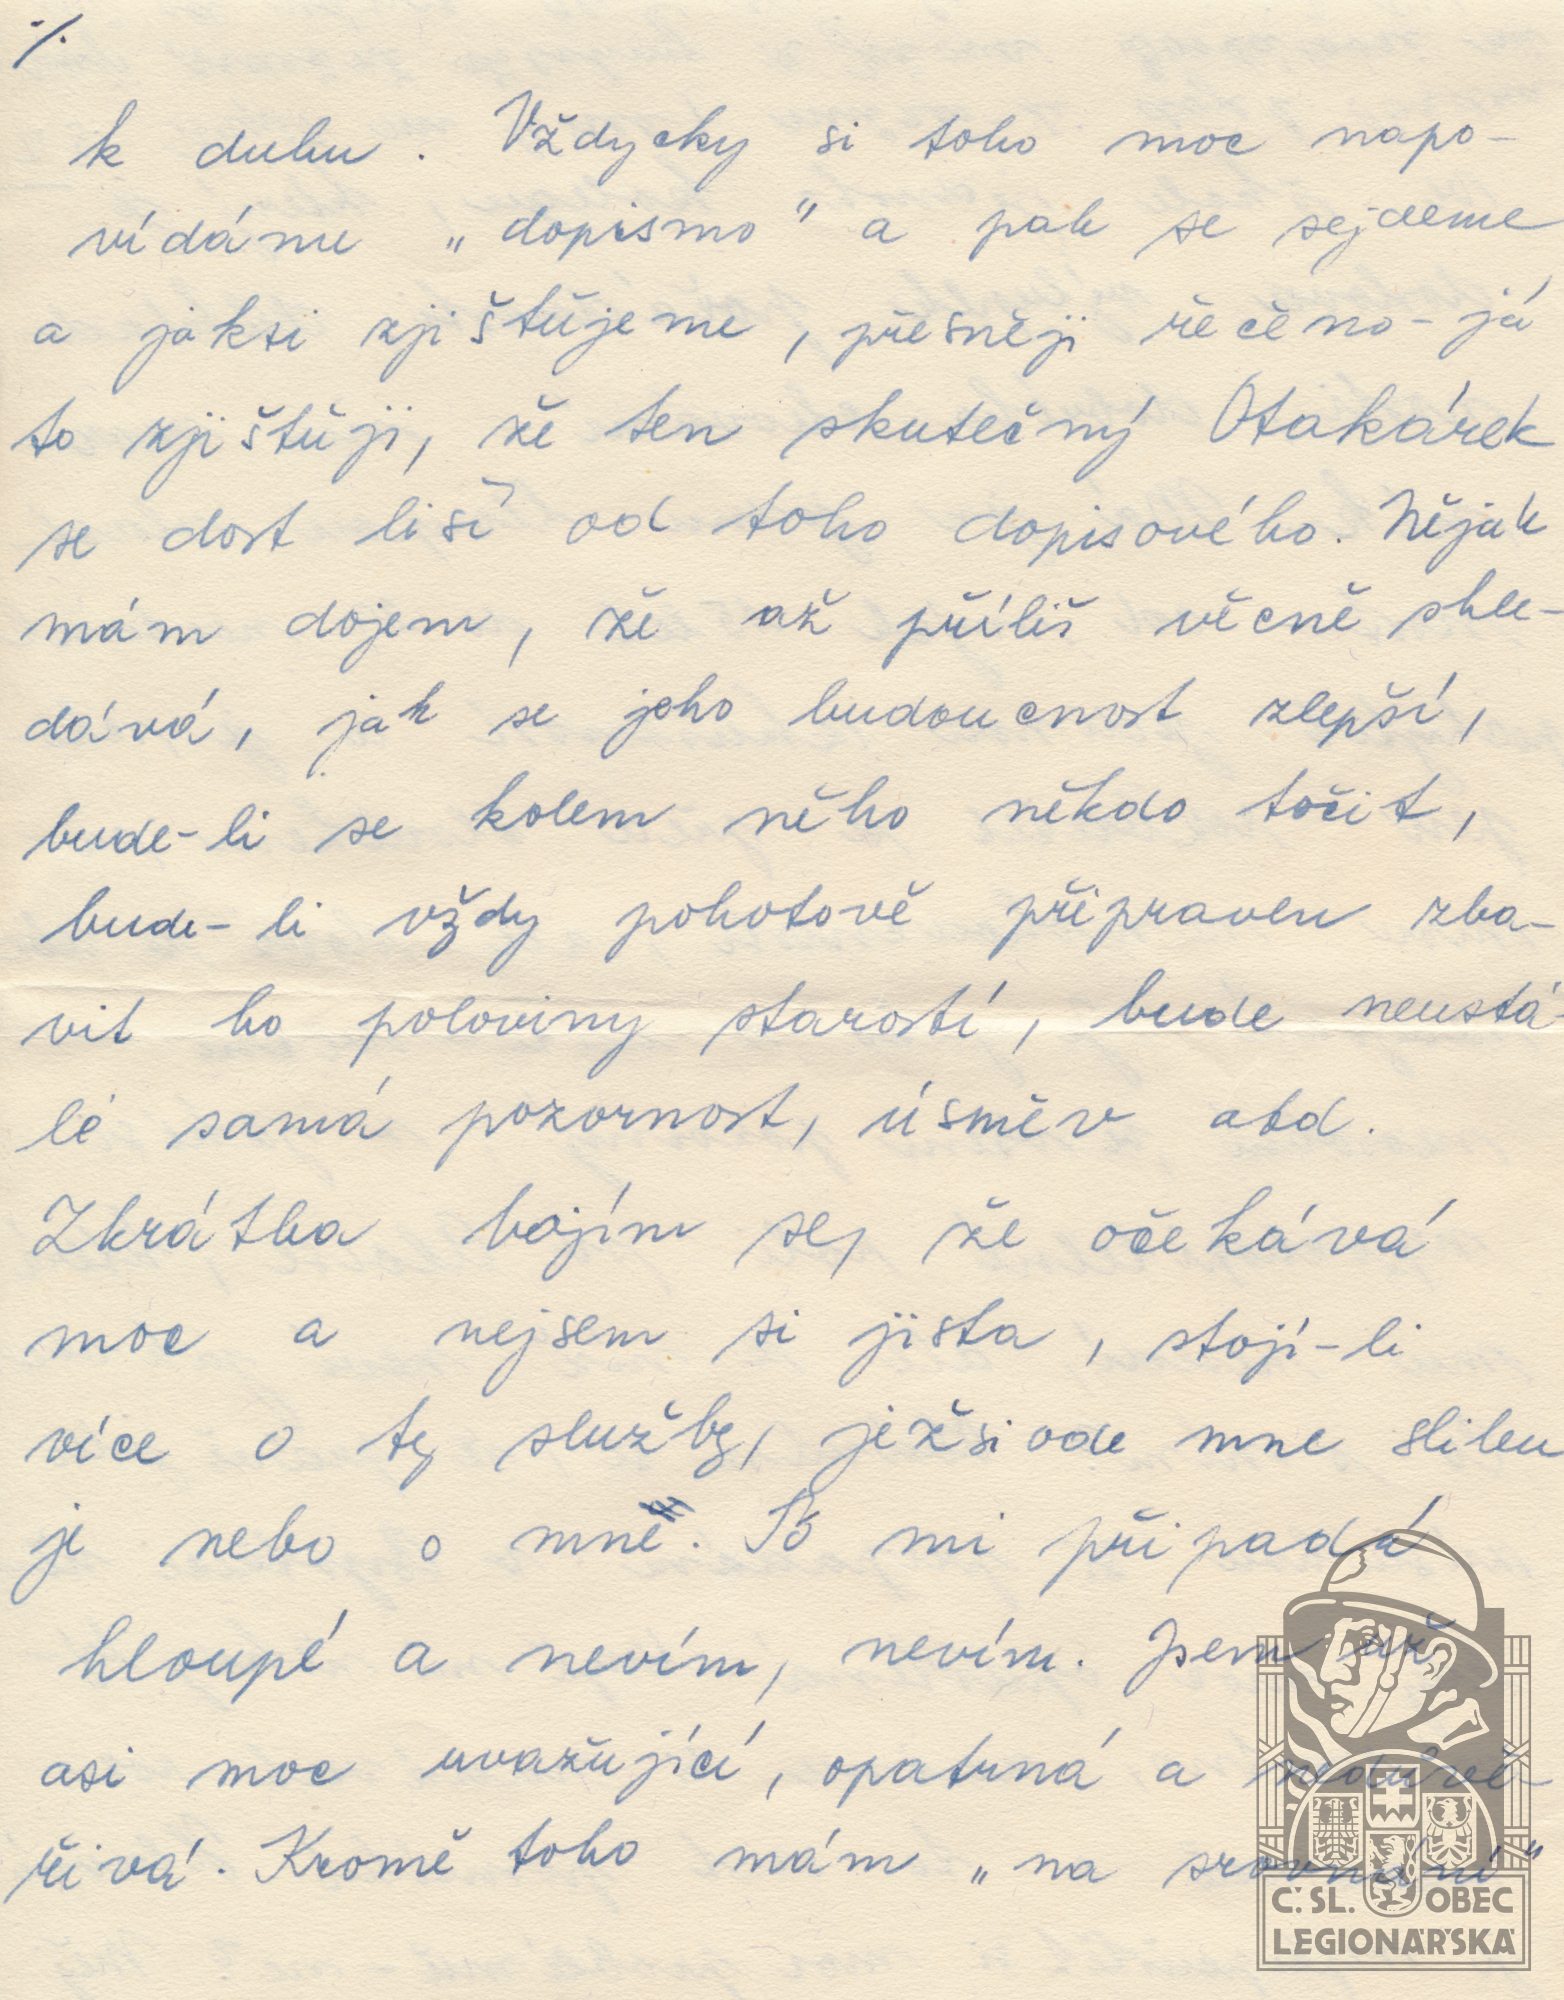 ·/.
k duhu. Vždycky si toho moc napo-
vídáme „dopismo" a pak se sejdeme
a jaksi zjišťujeme, přesněji řečeno - já
to zjišťuji, že ten skutečný Otakárek
se dost liší od toho dopisového. Nějak
mám dojem, že až příliš věcně shle-
dává, jak se jeho budoucnost zlepší,
bude-li se kolem něho někdo točit,
bude-li vždy pohotově připraven zba-
vit ho poloviny starostí, bude neustá-
lé samá pozornost, úsměv atd.
Zkrátka bojím se, že očekává
moc a nejsem si jista, stojí-li
více o ty služby, jež si ode mne slibu
je nebo o mně. To mi připadá
hloupé a nevím, nevím. Jsem už
asi moc uvažující, opatrná a nedůvě-
řivá. Kromě toho mám „na srovnání"
Č.SL. OBEC
LEGIONÁŘSKÁ